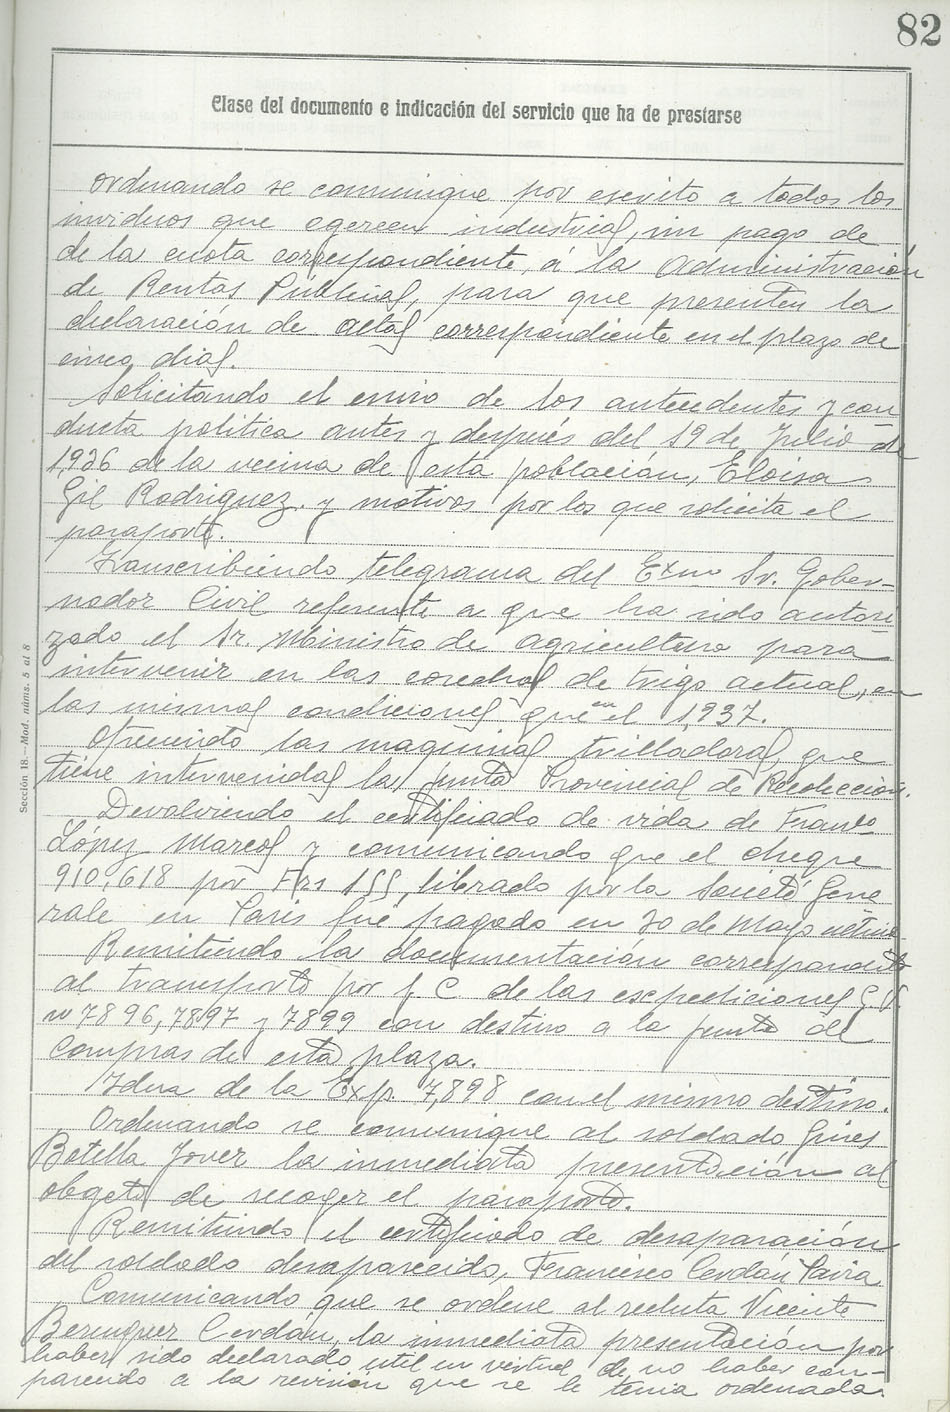 82
Clase del documento e indicación del servicio que ha de prestarse
Ordenando se comunique por escrito a todos los
inviduos que egercen industrias, sin pago de
de la cuota correspondiente, á la Administración
de Rentas Públicas, para que presenten la
declaración de altas correspondiente en el plazo de
cinco dias.
Solicitando el envio de los antecedentes y con
ducta politica antes y después del 19 de Julio de
1,936 de la vecina de esta población, Eloisa
Gil Rodriguez. y motivos por los que solicita el
pasaporte.
Transcribiendo telegrama del Exmo Sr. Gober-
nador Civil referente a que ha sido autori
zado el Sr. Ministro de agricultura para
intervenir en las cosechas de trigo actual, en
las mismas condiciones que en el 1,937.
Ofreciendo las maquinas trilladoras, que
tiene intervenidas la Junta Provincial de Recolección.
Devolviendo el certificado de vida de Franco
López Marcos y comunicando que el cheque
910,618 por Frs 155, librado por la Societé Gene
rale en Paris fué pagado en 30 de Mayo último
Remitiendo la documentación correspondiente
al transporte por f. C de las expediciones G.V.
nº 7896, 7897 y 7899 con destino a la junta de
Compras de esta plaza.
Idem de la Exp. 7,898 con el mismo destino.
Ordenando se comunique al soldado Gines
Botella Jover la inmediata presentación al
objeto de recoger el pasaporte.
Remitiendo el certificado de desaparación
del soldado desaparecido, Francisco Cerdán
Comunicando que se ordene al recluta Vicente
Berenguer Cerdán, la inmediata presentación por
haber sido declarado util en virtud de no haber com-
parecido a la revisión que se le tenia ordenada.
Sección 18.—Mod. núms. 5 al 8